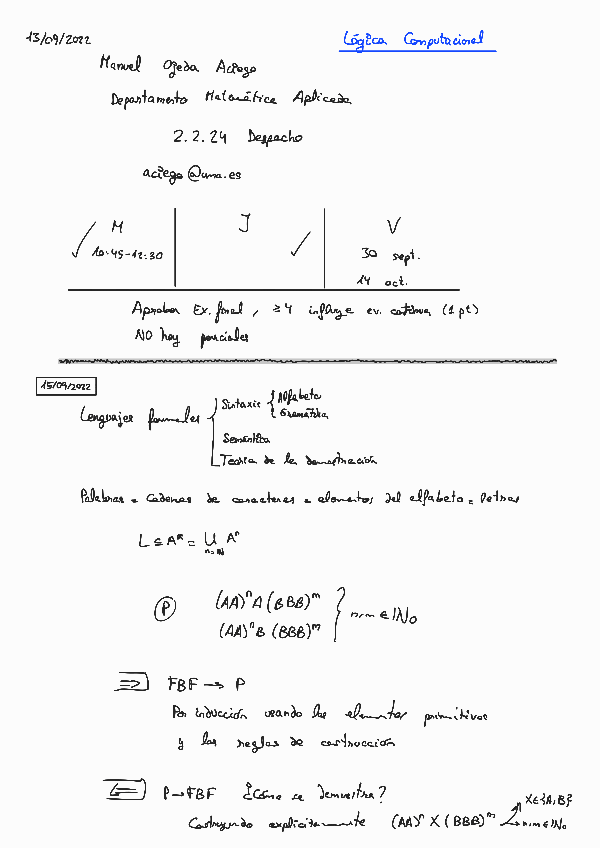 13/09/2022 Lógica Computacional
Manuel Ojeda Aciego
Departamento Matemática Aplicada
2.2.24 Despacho
aciego@uma.es
M J V
✓ 10:45-12:30 ✓ 30 sept.
14 oct.
Aprobar Ex. final, ≥4 influye ev. continua (1 pt)
NO hay parciales
15/09/2022
Lenguajes formales { Sintaxis { Alfabeto
Gramática
Semántica
Teoría de la demostración
Palabras = cadenas de caracteres = elementos del alfabeto = letras
L ⊆ A* = ∪ Aⁿ
n∈ℕ
P (AA)ⁿA(BBB)ᵐ
(AA)ⁿB(BBB)ᵐ } n,m ∈ ℕ₀
⇒ FBF → P
Por inducción usando los elementos primitivos
y las reglas de construcción
⇐ P → FBF ¿Cómo se demuestra?
Construyendo explícitamente (AA)ⁿ X (BBB)ᵐ X∈{A,B}
n,m ∈ ℕ₀